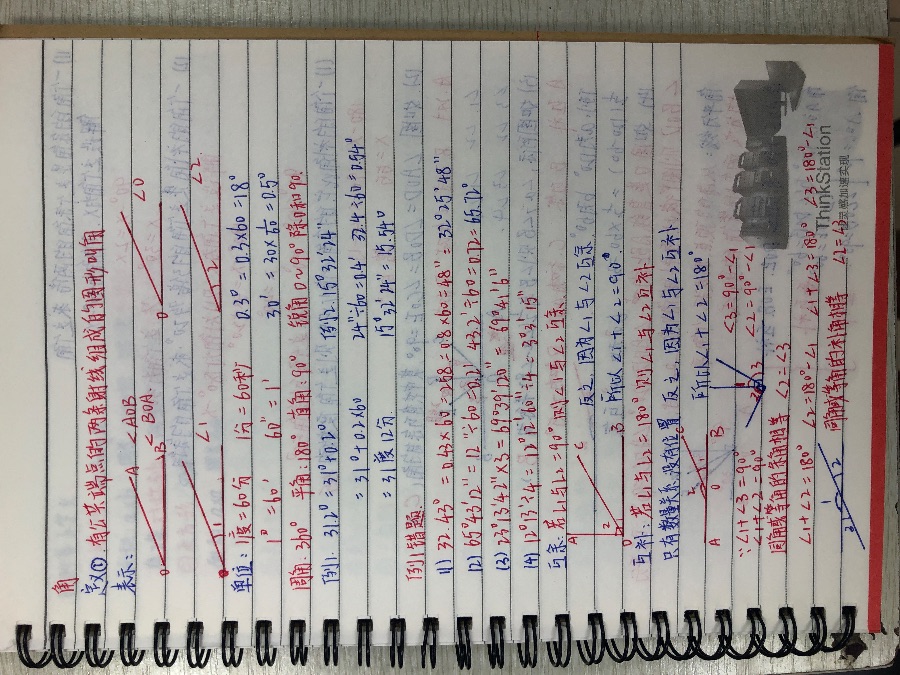 角
定义①:有公共端点的两条射线组成的图形叫角
表示: A <AOB
O B <BOA O <O
1 <1 2 <2
单位:1度=60分 1分=60秒 0.3°=0.3×60=18°
1°=60′ 60″=1′ 30′=30×1/60=0.5°
周角:360° 平角:180° 直角:90° 锐角0~90°除0和90.
例1. 31.2°=31°+0.2° 例2.15°32′24″
=31°+0.2×60 24″÷60=0.4′ 32.4÷60=0.54°
=31度12分 15°32′24″=15.54°
例错题.
(1) 32.43°=0.43×60=25.8=0.8×60=48″=32°25′48″
(2) 65°43′12″=12″÷60=0.2′ 43.2′÷60=0.72=65.72°
(3) 23°13′42″×3=69°39′120″=69°41′6″
(4) 12°13′÷4=12°12′60″÷4=3°3′15″
互余:若∠1与∠2=90°则∠1与∠2互余.
A C 反之,因为∠1与∠2互余
1 2 O B 所以∠1+∠2=90°
互补:若∠1与∠2=180°则∠1与∠2互补
只有数量关系,没有位置 反之,因为∠1与∠2互补
A O B C 所以∠1+∠2=180°
∵∠1+∠3=90° <3=90°-∠1
<1+∠2=90° <2=90°-∠1
同角或等角的余角相等 ∠2=∠3
∠1+∠2=180° ∠2=180°-∠1 ∠1+∠3=180° ∠3=180°-∠1
3 1 2 同角或等角的补角相等
ThinkStation
灵感加速实现